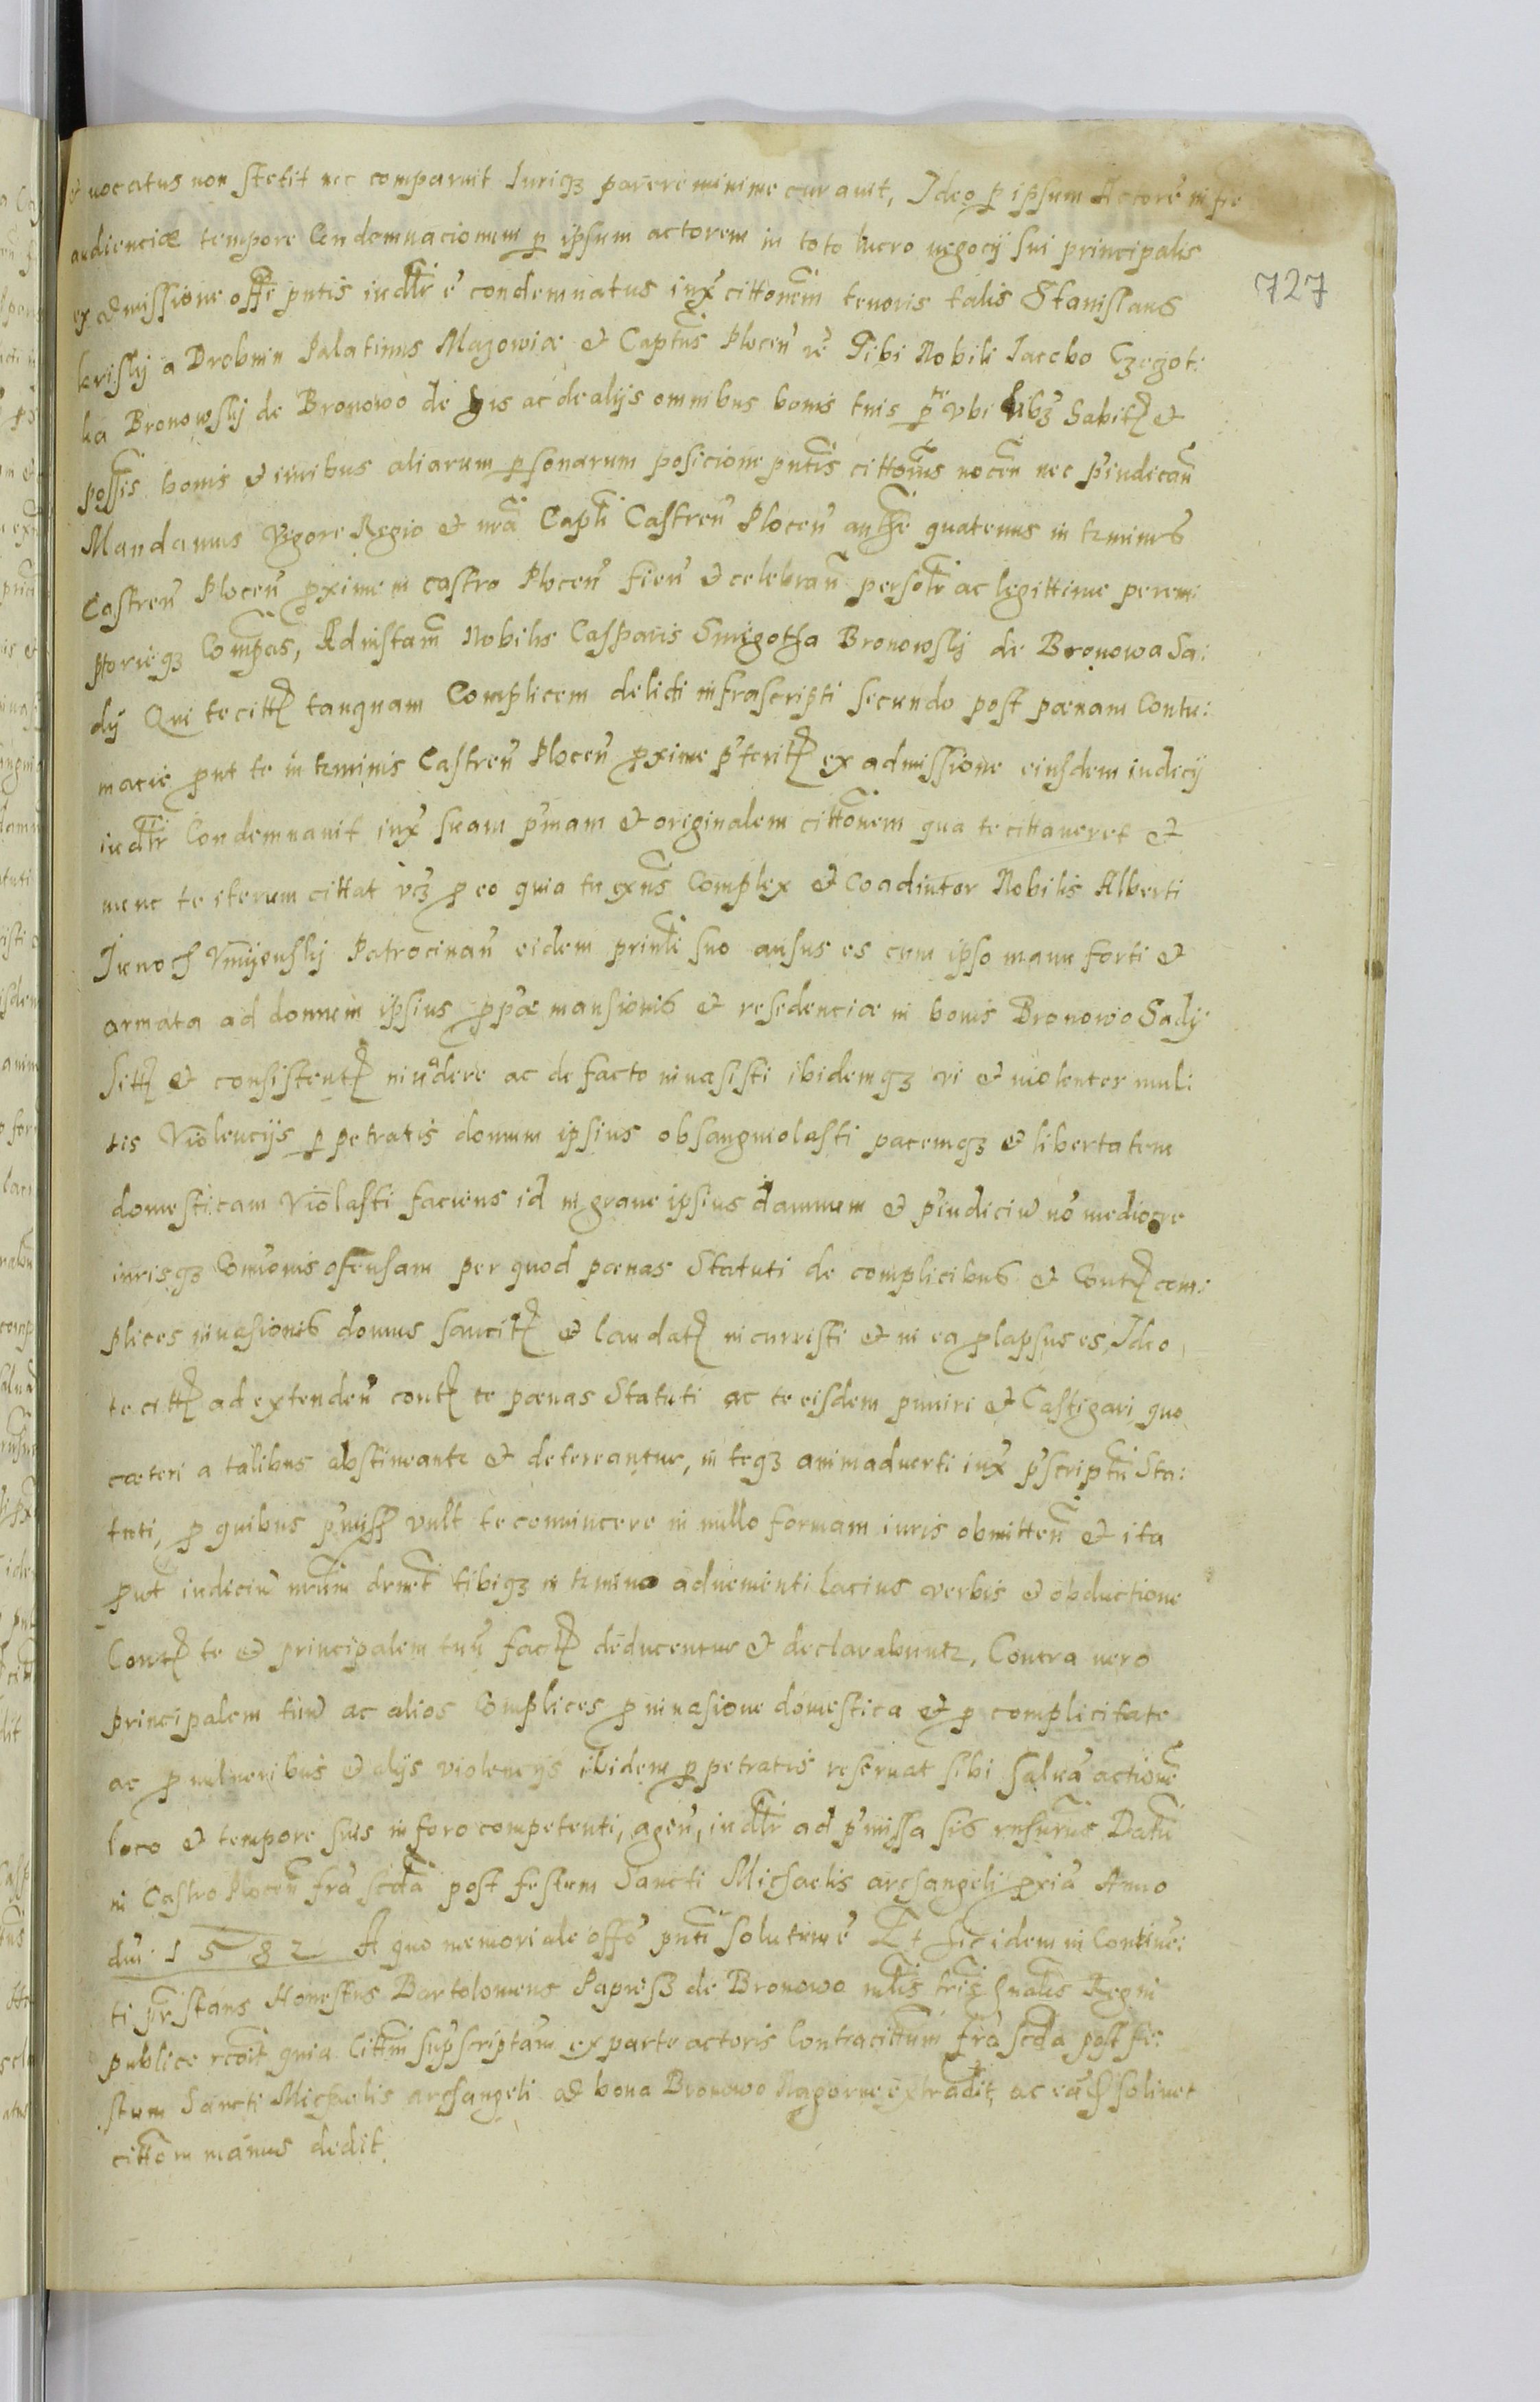 & uocatus non stetit nec comparuit Iuriqз parere minime curauit, Ideo p ipsum Actorē in fie
727
audienciæ tempore Condemnacionem p ipsum actorem in toto lucro negocij sui principalis
ex admissione offi pntis iudlr ē condemnatus iux cittonem tenoris talis Stanislaus
krisky a Drobnin Palatinus Mazowiæ & Captus Plocen re Tibi Nobili Iacobo Czegot:
ka Bronowskj de Bronowo de his ac de alijs omnibus bonis tuis p vbi libз habitt &
possis bonis & iuribus aliarum psonarum posicione pntis cittonis nocen nec p̄iudican
Mandamus Vigore Regio & nra Capli Castren Plocen authe quatenus in tzminis
Castren Plocen pxime in castro Plocen fien & celebran persolr ac legittime perem:
ptorieqз Compas, Ad instam Nobilis Casparis Smigotha Bronowskj de Bronowa Sa:
dy Qui te citt tanquam Complicem delicti infrascripti secundo post pœnam Contu:
macie put te in tzminis Castren Plocen pxime p̄terit ex admissione eiusdem iudicij
iudlr Condemnauit iux suam p̄mam & originalem cittonem qua te cittaueret &
nunc te iterum cittat vз p eo quia tu exns Complex & Coadiutor Nobilis Alberti
Junoch Vmijenskj Patrocinan eidem prinli suo ausus es cum ipso manu forti &
armata ad domum ipsius ppæ mansionis & residenciæ in bonis Bronowo Sady
sitt & consistent inuadere ac de facto inuasisti ibidemqз vi & uiolenter mul:
tis Violencijs p petratis domum ipsius obsanguiolasti pacemqз & libertatem
domesticam Violasti faciens id in graue ipsius damnum & p̄iudiciū nō mediocre
iurisqз Comunis ofensam per quod pœnas Statuti de complicibus & Cont com:
plices inuasionis domus sancit & laudat incurristi & in ea plapsus es, Ideo
te citt ad extenden cont te pœnas Statuti ac te eisdem puniri & Castigari quo
cæteri a talibus abstineantz & detereantur, in teqз animaduerti iux p̄scriptu Sta:
tuti, p quibus p̄miss vult te conuincere in nullo formam iuris obmitten & ita
put iudiciū nrum dcnet tibiqз in tzmino aduenienti lacius verbis & obductione
Cont te & principalem tuū fact deducentur & declarabuntz, Contra uero
principalem tuū ac alios Complices p inuasione domestica & p complicitate
ac p uulneribus & alijs violencijs ibidem p petratis reseruat sibi saluā actionē
loco & tempore suis in foro competenti, agen, iudlr ad p̄missa sis rnsurus Datu
in Castro Plocen fra scda post festum Sancti Michaelis archangeli pxia Anno
dni 1582 A quo memoriale offo pnti solutum ē Et sic idem in Contine:
ti p̄stans Honestus Bartolomeus Papiesз de Bronowo mlis tris gnalis Regni
publice rcoit quia Cittom sup̄scriptam ex parte actoris Contra cittum fra scda post fe:
stum Sancti Michaelis archangeli ad bona Bronowo Nagorne extradit, ac eā
cittom manus dedit.